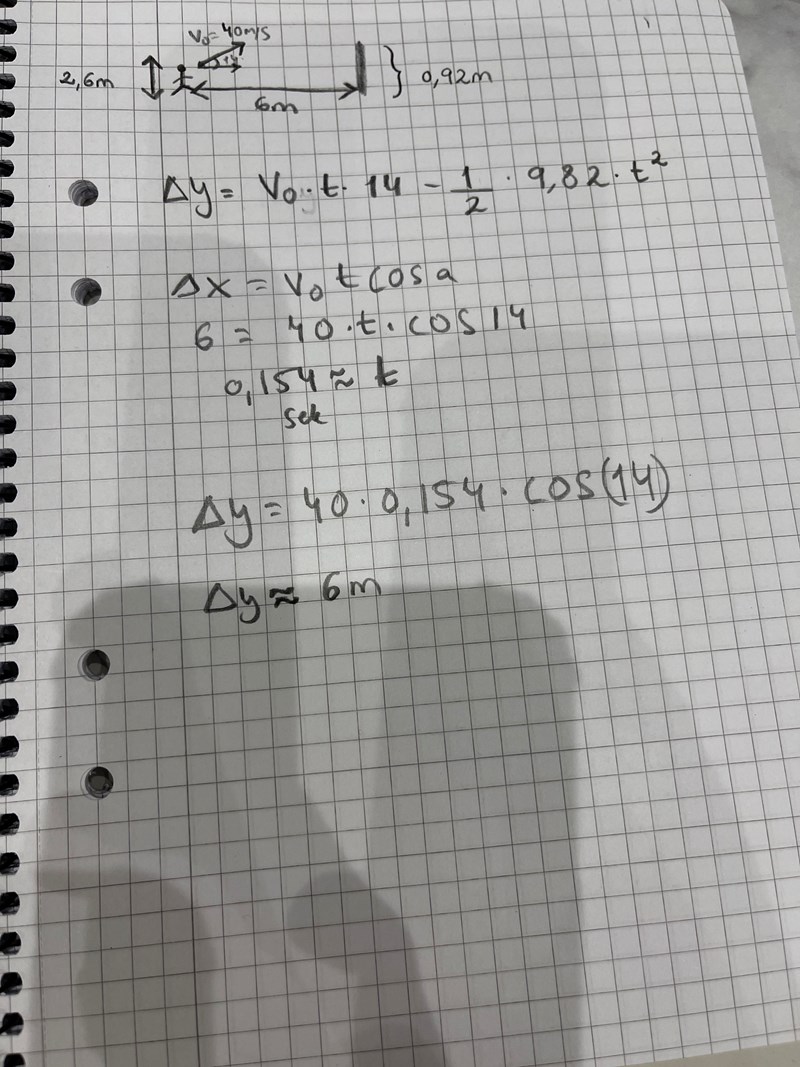 V₀=40m/s
14
2,6m
6m
0,92m
Δy = V₀·t·14 - 1/2 · 9,82·t²
Δx = V₀ t cos a
6 = 40·t·cos 14
0,154 ≈ t
sek
Δy = 40·0,154·cos(14)
Δy ≈ 6m